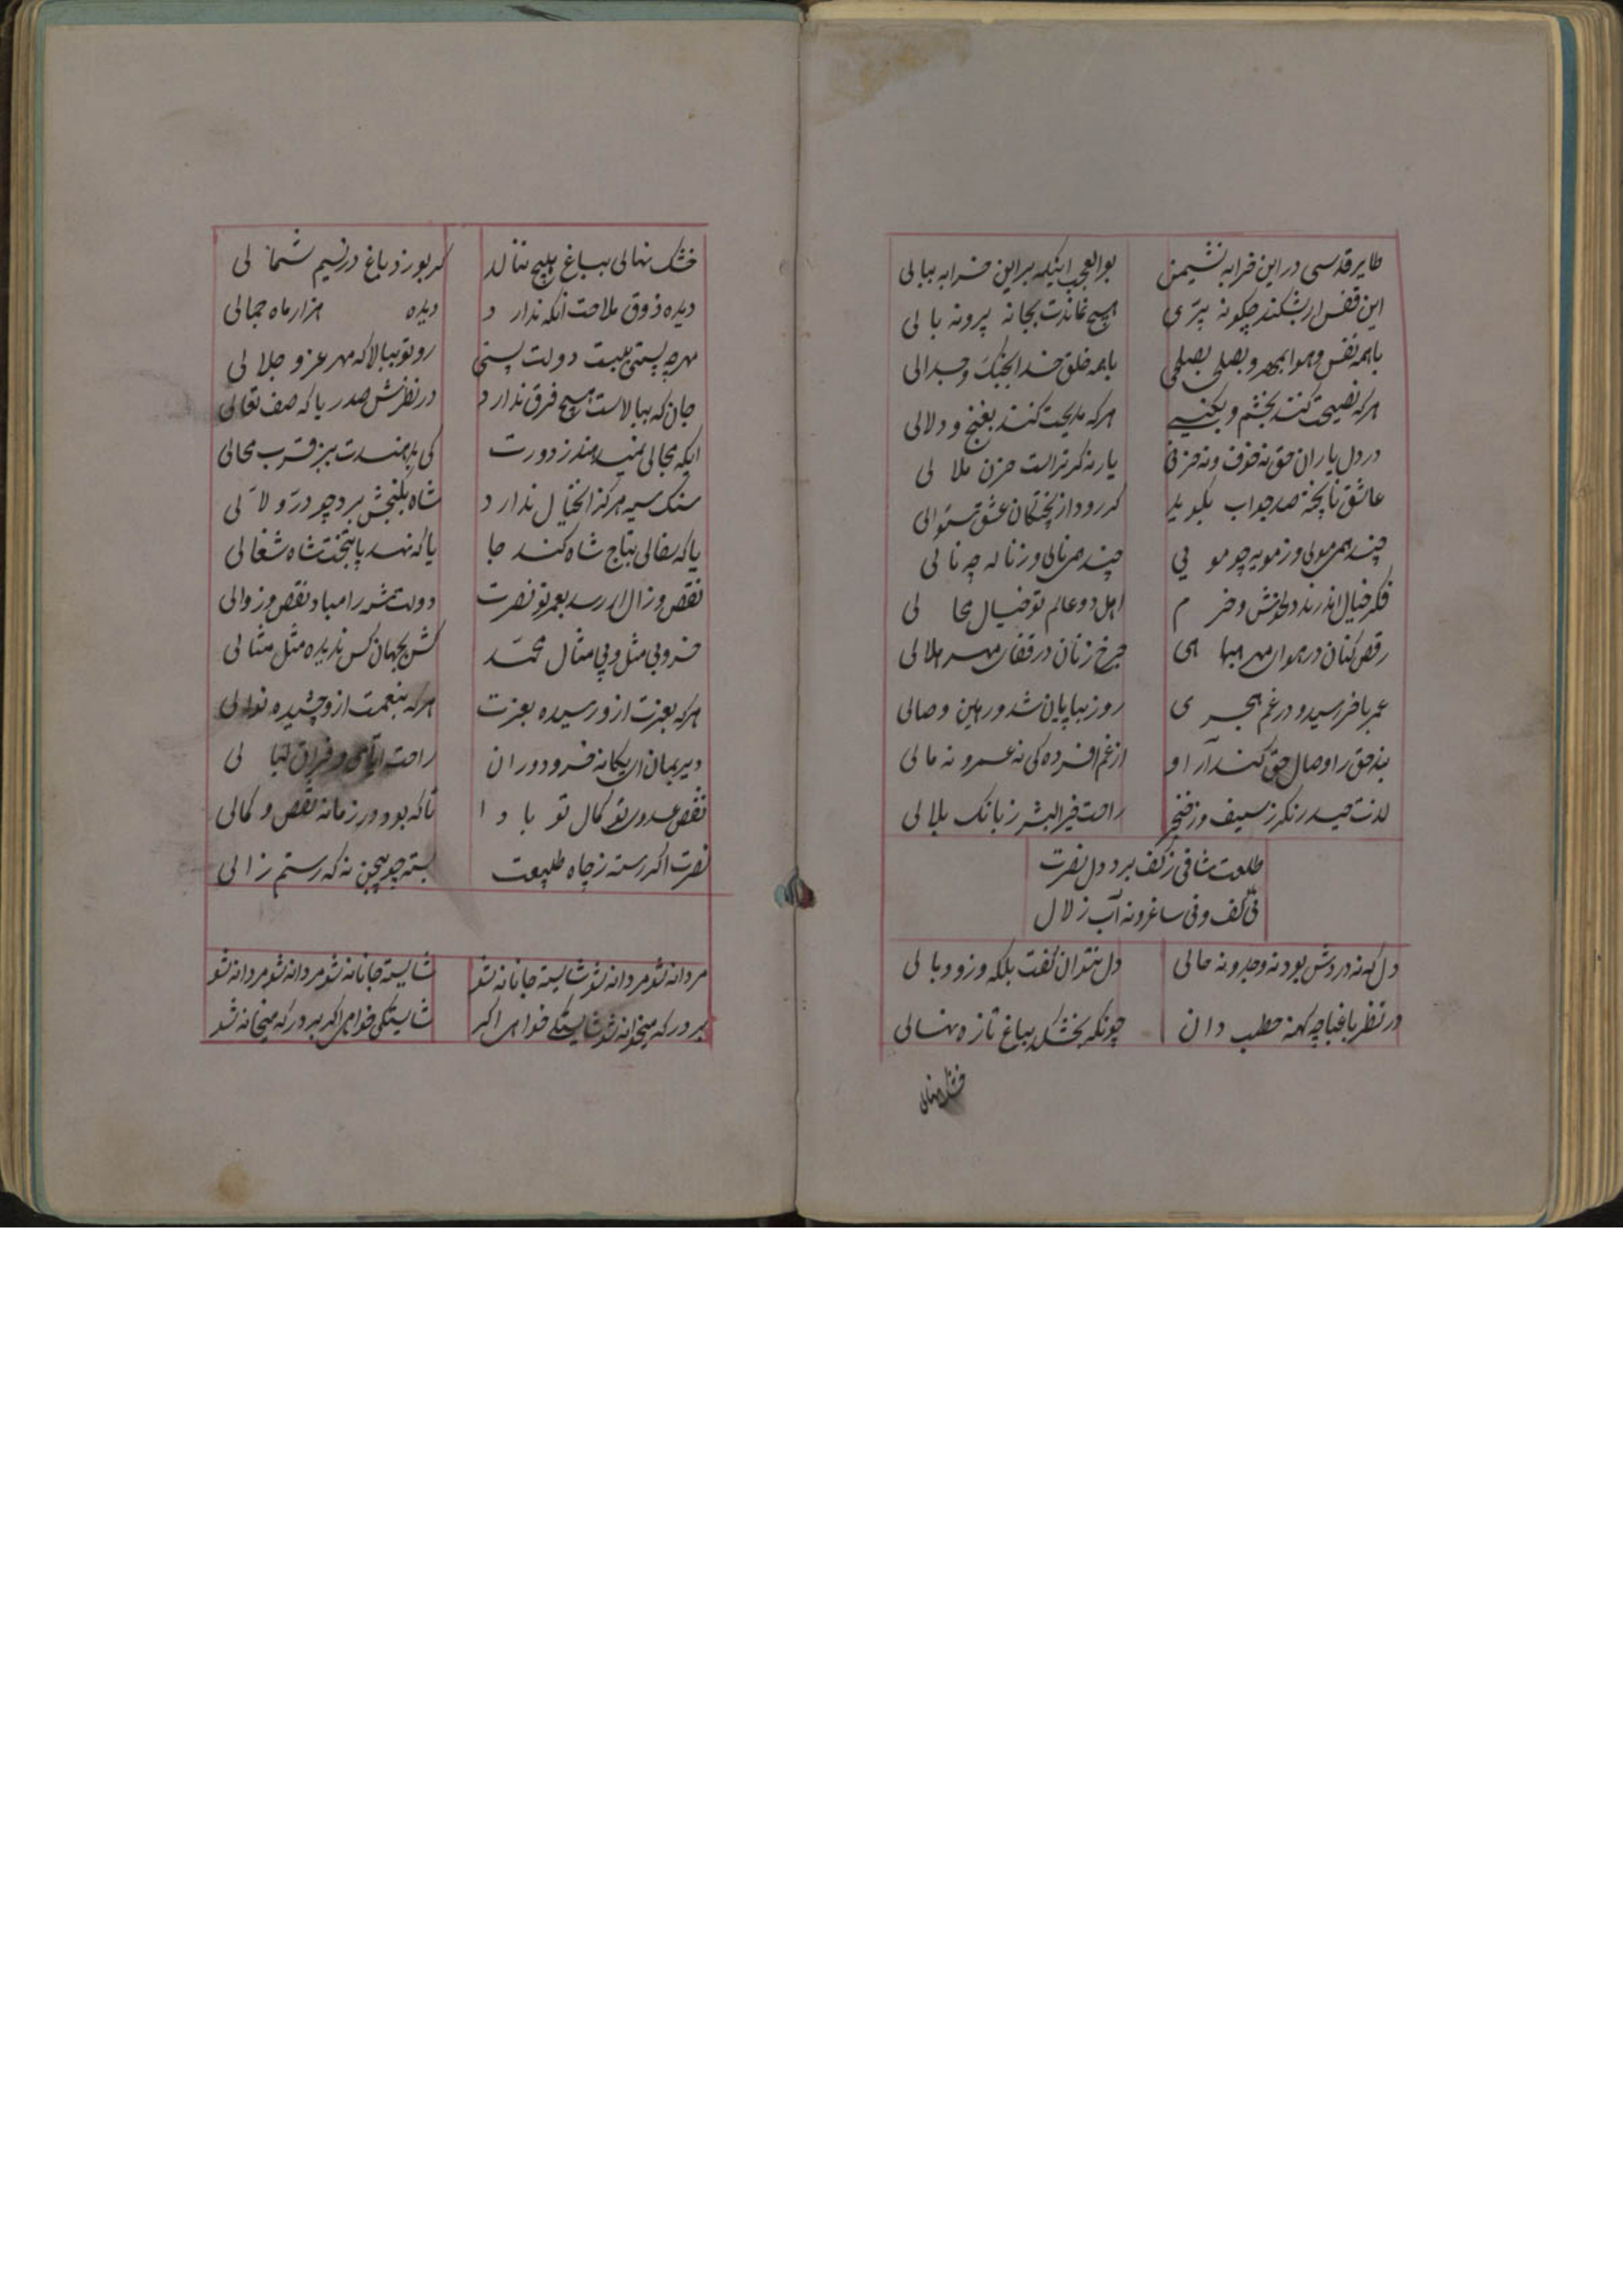 طایر قدسی در این خرابه نشیمن بوالعجب اینکه بر این خرابه ببالی
این قفس ار بشکند چگونه پری هیچ نماندت بجا نه پر و نه بالی
با همه نفس و هوا بمهر و بصلحی با همه خلق خدا بجنگ و جدالی
هر که نصیحت کند بخشم و بکینی هر که مدیحت کند بغنج و دلالی
در دل یاران حق نه خوف و نه حزن یار نه گر تراست حزن ملالی
عاشق ناپخته صد جواب بگوید گر رود از پختگان عشق سئوالی
چند همی مویی و ز مویه چو مویی چند همی نالی و ز ناله چه نالی
فکر خیال اندرند دلخوش و خرم اهل دو عالم تو خیال محالی
رقص کنان در هوای مهر هبائی چرخ زنان در قفای مهر هلالی
عمر باخر رسید و در غم هجری روز بپایان شد و رهین وصالی
بنده حق را وصال حق کند آزاد از غم افسرده کی نه عمرو نه مالی
لذت حیدر نگر ز سیف و ز خنجر راحت خیر البشر ز بانک بلالی
طلعت ساقی ز کف برد دل نصرت
نی کف و نی ساغر و نه آب زلال
دل که نه دردش بود نه وجد و نه حالی دل نتوان گفت بلکه وزر و وبالی
در نظر باغباچه کهنه حطب دان چونکه بخشکد بباغ تازه نهالی
خشک نهالی
خشک نهالی بباغ هیچ ننالد گر بوزد باغ در نسیم شمالی
دیده ذوق ملاحت آنکه ندارد دیده هزار ماه جمالی
مهر چه پستی بلیت دولت پستی رو تو ببالا که مهر عز و جلالی
جان که ببالاست هیچ فرق ندارد در نظرش صدر یا که صف نعالی
ایکه مجالی نمیدهند ز دورت کی بدهندت ببزم قرب مجالی
سنک سیه هرگز این خیال ندارد شاه بگنجش برد چو در و لآلی
یا که سفالی بتاج شاه کند جا یا که نهد پا بتخت شاه شغالی
نقص و زوال ار رسد بعمر تو نصرت دولت شه را مباد نقص و زوالی
خسرو بی مثل و بی مثال محمد کش بجهان کس ندیده مثل مثالی
هر که بعزت از و رسیده بعزت هر که بنعمت از و چشیده نوالی
دیر بمان ای یگانه خسرو دوران راحت ایامی و لیالی
نقص عدوی تو کمال تو بادا تا که بود در زمانه نقص و کمالی
نصرت اگر رسته ز چاه طبیعت بسته چو بیجن نه که رستم زالی
مردانه شو مردانه شو شایسته جانانه شو شایسته جانانه شو مردانه شو مردانه شو
بر درکه میخانه شو شایستگی خواهی اگر شایستگی خواهی اگر بر درکه میخانه شو